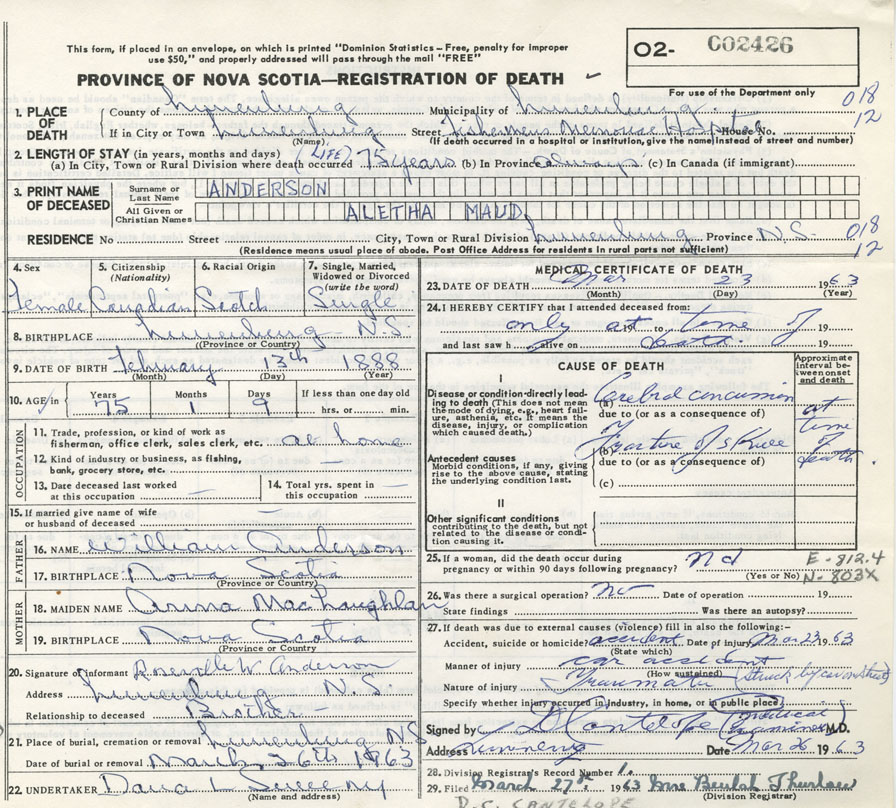 This form, if placed in an envelope, on which is printed "Dominion Statistics – Free, penalty for improper
use $50," and properly addressed will pass through the mail "FREE"
O2- C02426
PROVINCE OF NOVA SCOTIA—REGISTRATION OF DEATH
For use of the Department only
1. PLACE OF DEATH County of Lunenburg Municipality of Lunenburg 018
If in City or Town Lunenburg Street Fishermens Memorial Hospital House No. 12
(Name) (If death occurred in a hospital or institution, give the name instead of street and number)
2. LENGTH OF STAY (in years, months and days) (LIFE)
(a) In City, Town or Rural Division where death occurred 75 years (b) In Province always (c) In Canada (if immigrant)
3. PRINT NAME OF DECEASED Surname or Last Name ANDERSON
All Given or Christian Names ALETHA MAUD
RESIDENCE No Street City, Town or Rural Division Lunenburg Province N.S. 018
(Residence means usual place of abode. Post Office Address for residents in rural parts not sufficient) 12
4. Sex 5. Citizenship (Nationality) 6. Racial Origin 7. Single, Married, Widowed or Divorced (write the word)
Female Canadian Scotch Single
8. BIRTHPLACE Lunenburg N.S.
(Province or Country)
9. DATE OF BIRTH February 13th 1888
(Month) (Day) (Year)
10. AGE in Years Months Days If less than one day old
75 1 9 hrs. or min.
OCCUPATION
11. Trade, profession, or kind of work as
fisherman, office clerk, sales clerk, etc. at home
12. Kind of industry or business, as fishing,
bank, grocery store, etc. —
13. Date deceased last worked
at this occupation —
14. Total yrs. spent in
this occupation —
15. If married give name of wife
or husband of deceased —
FATHER
16. NAME William Anderson
17. BIRTHPLACE Nova Scotia
(Province or Country)
MOTHER
18. MAIDEN NAME Anna MacLaughlan
19. BIRTHPLACE Nova Scotia
(Province or Country)
20. Signature of informant Roseville W Anderson
Address Lunenburg N.S.
Relationship to deceased Brother
21. Place of burial, cremation or removal Lunenburg NS
Date of burial or removal March 26th 1963
22. UNDERTAKER Dana L Sweeny
(Name and address)
MEDICAL CERTIFICATE OF DEATH
23. DATE OF DEATH Mar 23 1963
(Month) (Day) (Year)
24. I HEREBY CERTIFY that I attended deceased from:
only at 19 to time of 19
and last saw h alive on death. 19
CAUSE OF DEATH
Approximate interval between onset and death
I
Disease or condition-directly leading to death (This does not mean
the mode of dying, e.g., heart failure, asthenia, etc. It means the
disease, injury, or complication which caused death.)
(a) Cerebral concussion at time of death.
due to (or as a consequence of)
Antecedent causes
Morbid conditions, if any, giving rise to the above cause, stating
the underlying condition last.
(b) Fracture of skull
due to (or as a consequence of)
(c)
II
Other significant conditions
contributing to the death, but not related to the disease or condition causing it.
25. If a woman, did the death occur during
pregnancy or within 90 days following pregnancy? No
(Yes or No)
E-812.4
N-803X
26. Was there a surgical operation? No Date of operation 19
State findings Was there an autopsy?
27. If death was due to external causes (violence) fill in also the following:-
Accident, suicide or homicide? accident Date of injury Mar 23 1963
(State which)
Manner of injury car accident
(How sustained)
Nature of injury Traumatic (struck by car on street)
Specify whether injury occurred in industry, in home, or in public place
Signed by D Cantelope (Medical Examiner) M.D.
Address Date Mar 26 1963
28. Division Registrar's Record Number 1.
29. Filed March 27th 1963 Mrs Beulah Thurlow
(Division Registrar)
D.C. CANTELOPE